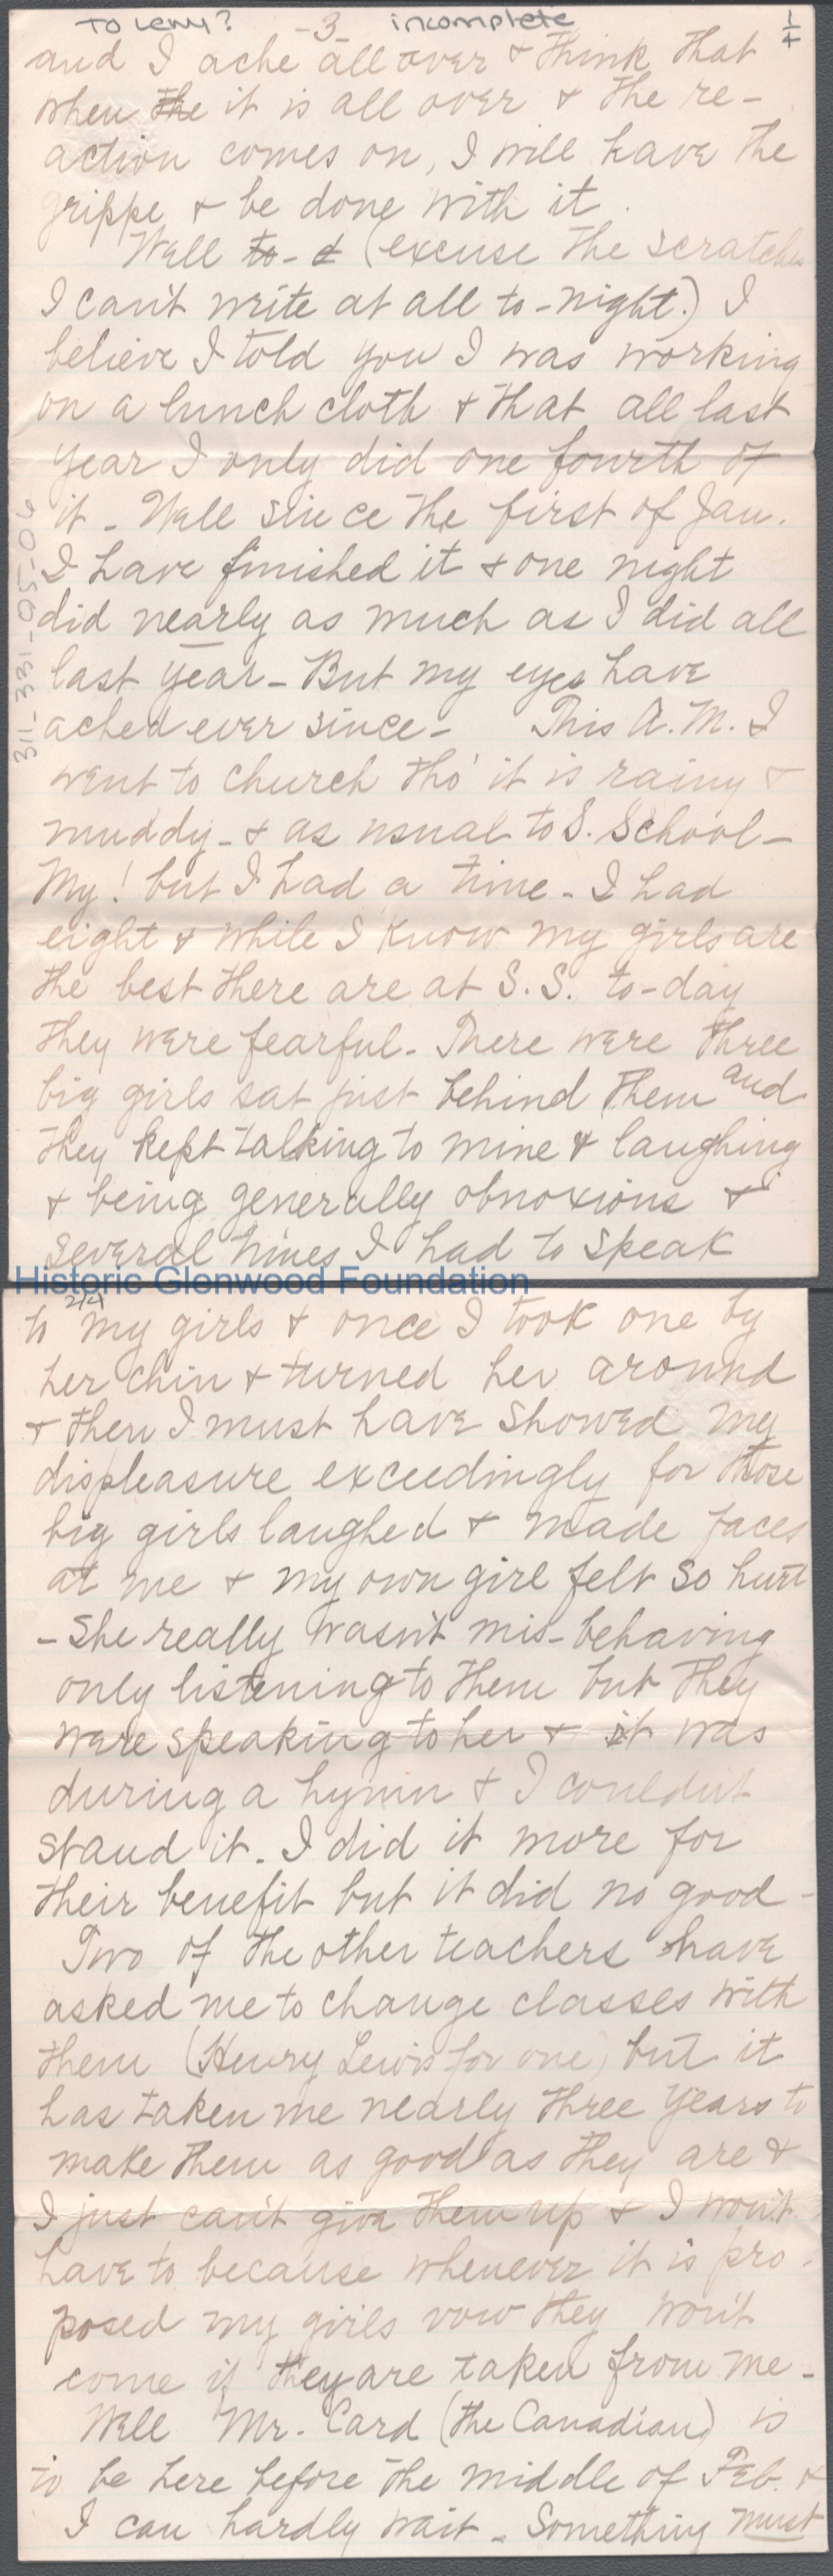 To Leny? -3- incomplete 1/4
and I ache all over & think that
when the it is all over & the re-
action comes on, I will have the
grippe & be done with it.
Well to - & (excuse the scratches
I can't write at all to-night.) I
believe I told you I was working
on a lunch cloth & that all last
year I only did one fourth of
it - Well since the first of Jan.
I have finished it & one night
did nearly as much as I did all
last year - But my eyes have
ached ever since - This A.M. I
went to church tho' it is rainy &
muddy - & as usual to S. School -
My! but I had a time - I had
eight & while I know my girls are
the best there are at S.S. to-day
they were fearful. There were three
big girls sat just behind them and
they kept talking to mine & laughing
& being generally obnoxious &
several times I had to speak
311-331-05-06
Historic Glenwood Foundation
2/4
to my girls & once I took one by
her chin & turned her around
& then I must have showed my
displeasure exceedingly for those
big girls laughed & made faces
at me & my own girl felt so hurt
- She really wasn't mis-behaving
only listening to them but they
were speaking to her & it was
during a hymn & I couldn't
stand it. I did it more for
their benefit but it did no good -
Two of the other teachers have
asked me to change classes with
them (Henry Lewis for one) but it
has taken me nearly three years to
make them as good as they are &
I just can't give them up & I won't
have to because whenever it is pro-
posed my girls vow they won't
come if they are taken from me -
Well Mr. Card (the Canadian) is
to be here before the middle of Feb. &
I can hardly wait - Something must